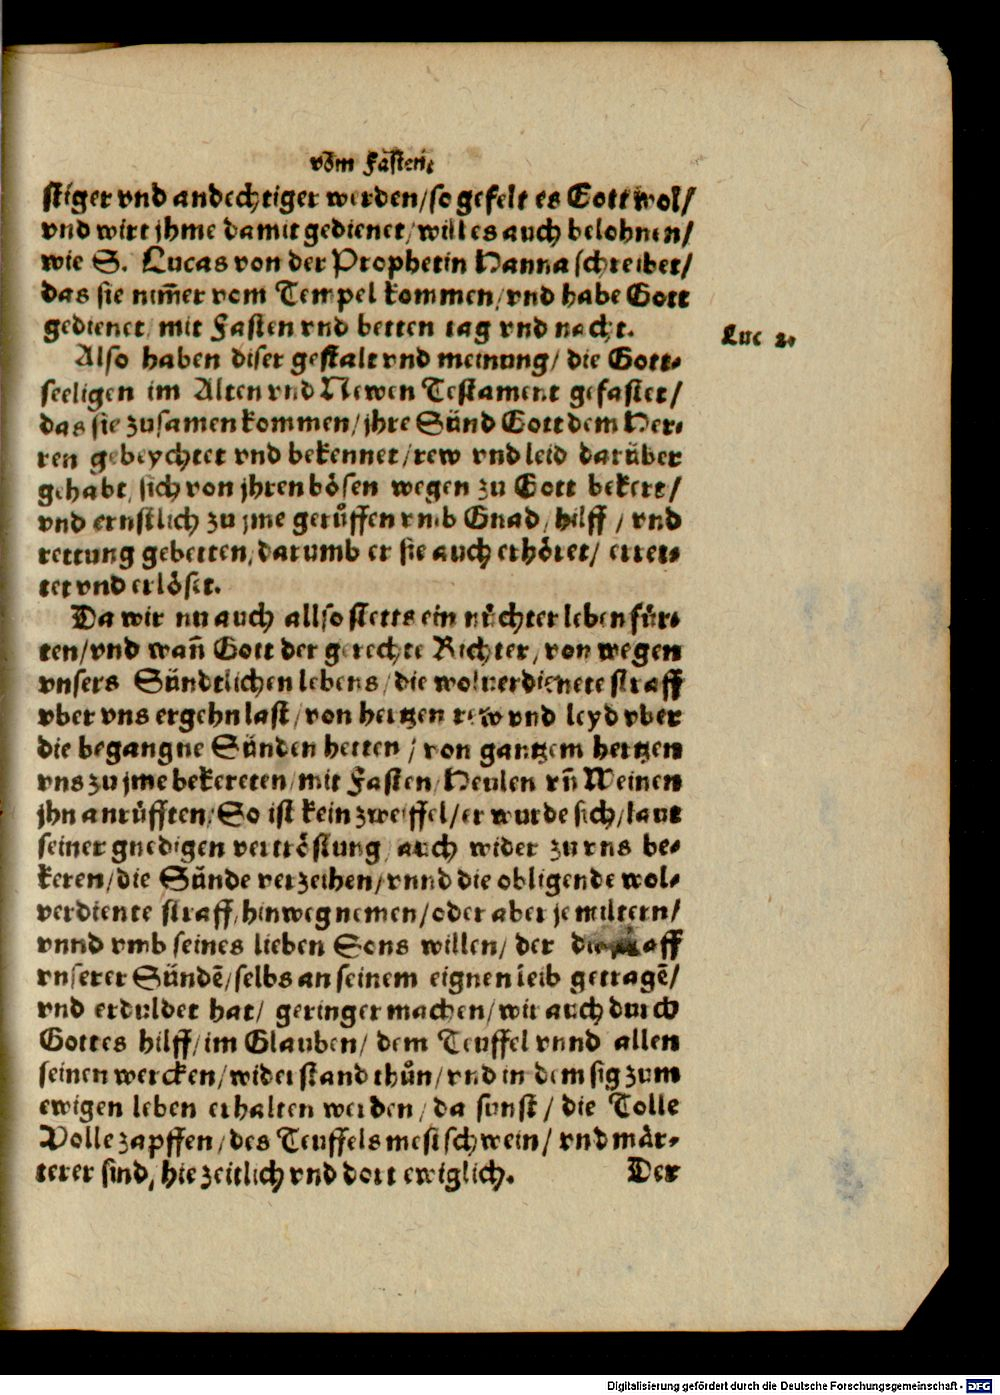 vom Fasten.
stiger vnd andechtiger werden/ so gefelt es Gott wol/
vnd wirt jhme damit gedienet/ will es auch belohnen/
wie S. Lucas von der Prophetin Hanna schreibet/
das sie nim̄er vom Tempel kommen/ vnd habe Gott
gedienet/ mit Fasten vnd betten tag vnd nacht.
Luc 2.
Also haben diser gestalt vnd meinung/ die Gott-
seeligen im Alten vnd Newen Testament gefastet/
das sie zusamen kommen/ jhre Sünd Gott dem Her-
ren gebeychtet vnd bekennet/ rew vnd leid darüber
gehabt/ sich von jhren bösen wegen zu Gott bekert/
vnd ernstlich zu jme gerůffen vmb Gnad/ hilff/ vnd
rettung gebetten/ darumb er sie auch erhöret/ erret-
tet vnd erlöset.
Da wir nu auch allso stetts ein nüchter leben für-
ten/ vnd wañ Gott der gerechte Richter/ von wegen
vnsers Sündtlichen lebens/ die wolverdienete straff
vber vns ergehn last/ von hertzen rew vnd leyd vber
die begangne Sünden hetten/ von gantzem hertzen
vns zu jme bekereten/ mit Fasten/ Heulen vñ Weinen
jhn anrüfften/ So ist kein zweiffel/ er wurde sich/ laut
seiner gnedigen vertröstung/ auch wider zu vns be-
keren/ die Sünde verzeihen/ vnnd die obligende wol-
verdiente straff/ hinweg nemen/ oder aber je miltern/
vnnd vmb seines lieben Sons willen/ der die straff
vnserer Sündẽ/ selbs an seinem eignen leib getragẽ/
vnd erduldet hat/ geringer machen/ wir auch durch
Gottes hilff/ im Glauben/ dem Teuffel vnnd allen
seinen wercken/ widerstand thůn/ vnd in dem sig zum
ewigen leben erhalten werden/ da sunst/ die Tolle
Volle zapffen/ des Teuffels mestschwein/ vnd mär-
terer sind/ hie zeitlich vnd dort ewiglich.
Der
Digitalisierung gefördert durch die Deutsche Forschungsgemeinschaft - DFG